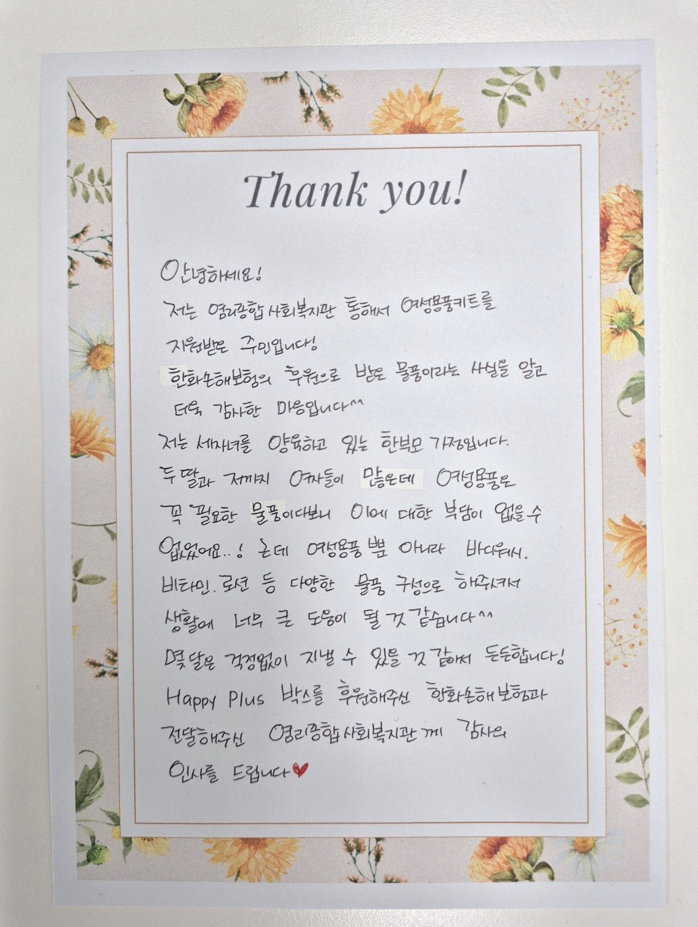 Thank you!
안녕하세요!
저는 염리종합사회복지관 통해서 여성용품키트를
지원받은 주민입니다!
한화손해보험의 후원으로 받은 물품이라는 사실을 알고
더욱 감사한 마음입니다^^
저는 세자녀를 양육하고 있는 한부모 가정입니다.
두 딸과 저까지 여자들이 많은데 여성용품은
꼭 필요한 물품이다보니 이에 대한 부담이 없을 수
없었어요..! 근데 여성용품 뿐 아니라 바디워시.
비타민. 로션 등 다양한 물품 구성으로 해주셔서
생활에 너무 큰 도움이 될 것 같습니다^^
몇 달은 걱정없이 지낼 수 있을 것 같아서 든든합니다!
Happy Plus 박스를 후원해주신 한화손해보험과
전달해주신 염리종합사회복지관께 감사의
인사를 드립니다♥